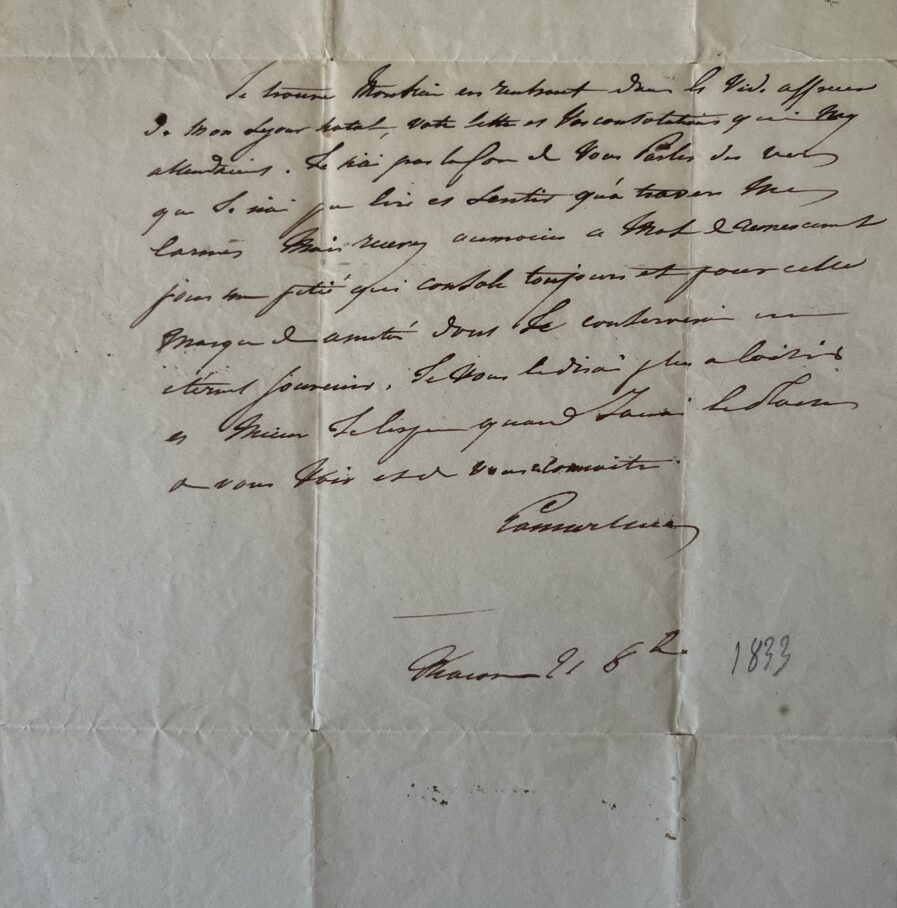 Je trouve Monsieur en rentrant dans le vide affreux
de mon séjour natal, votre lettre et vos consolations qui m'y
attendaient. Je n'ai pas la force de vous parler des vers
que je n'ai pu lire et sentir qu'à travers mes
larmes mais recevez au moins ce mot de remerciement
pour une pitié qui console toujours et pour cette
marque de amitié dont je conserverai un
éternel souvenir. Je vous le dirai plus a loisir
et mieux je l'espère quand j'aurai le plaisir
de vous voir et de vous connaitre.
Lamartine
Macon 21 8bre
1833